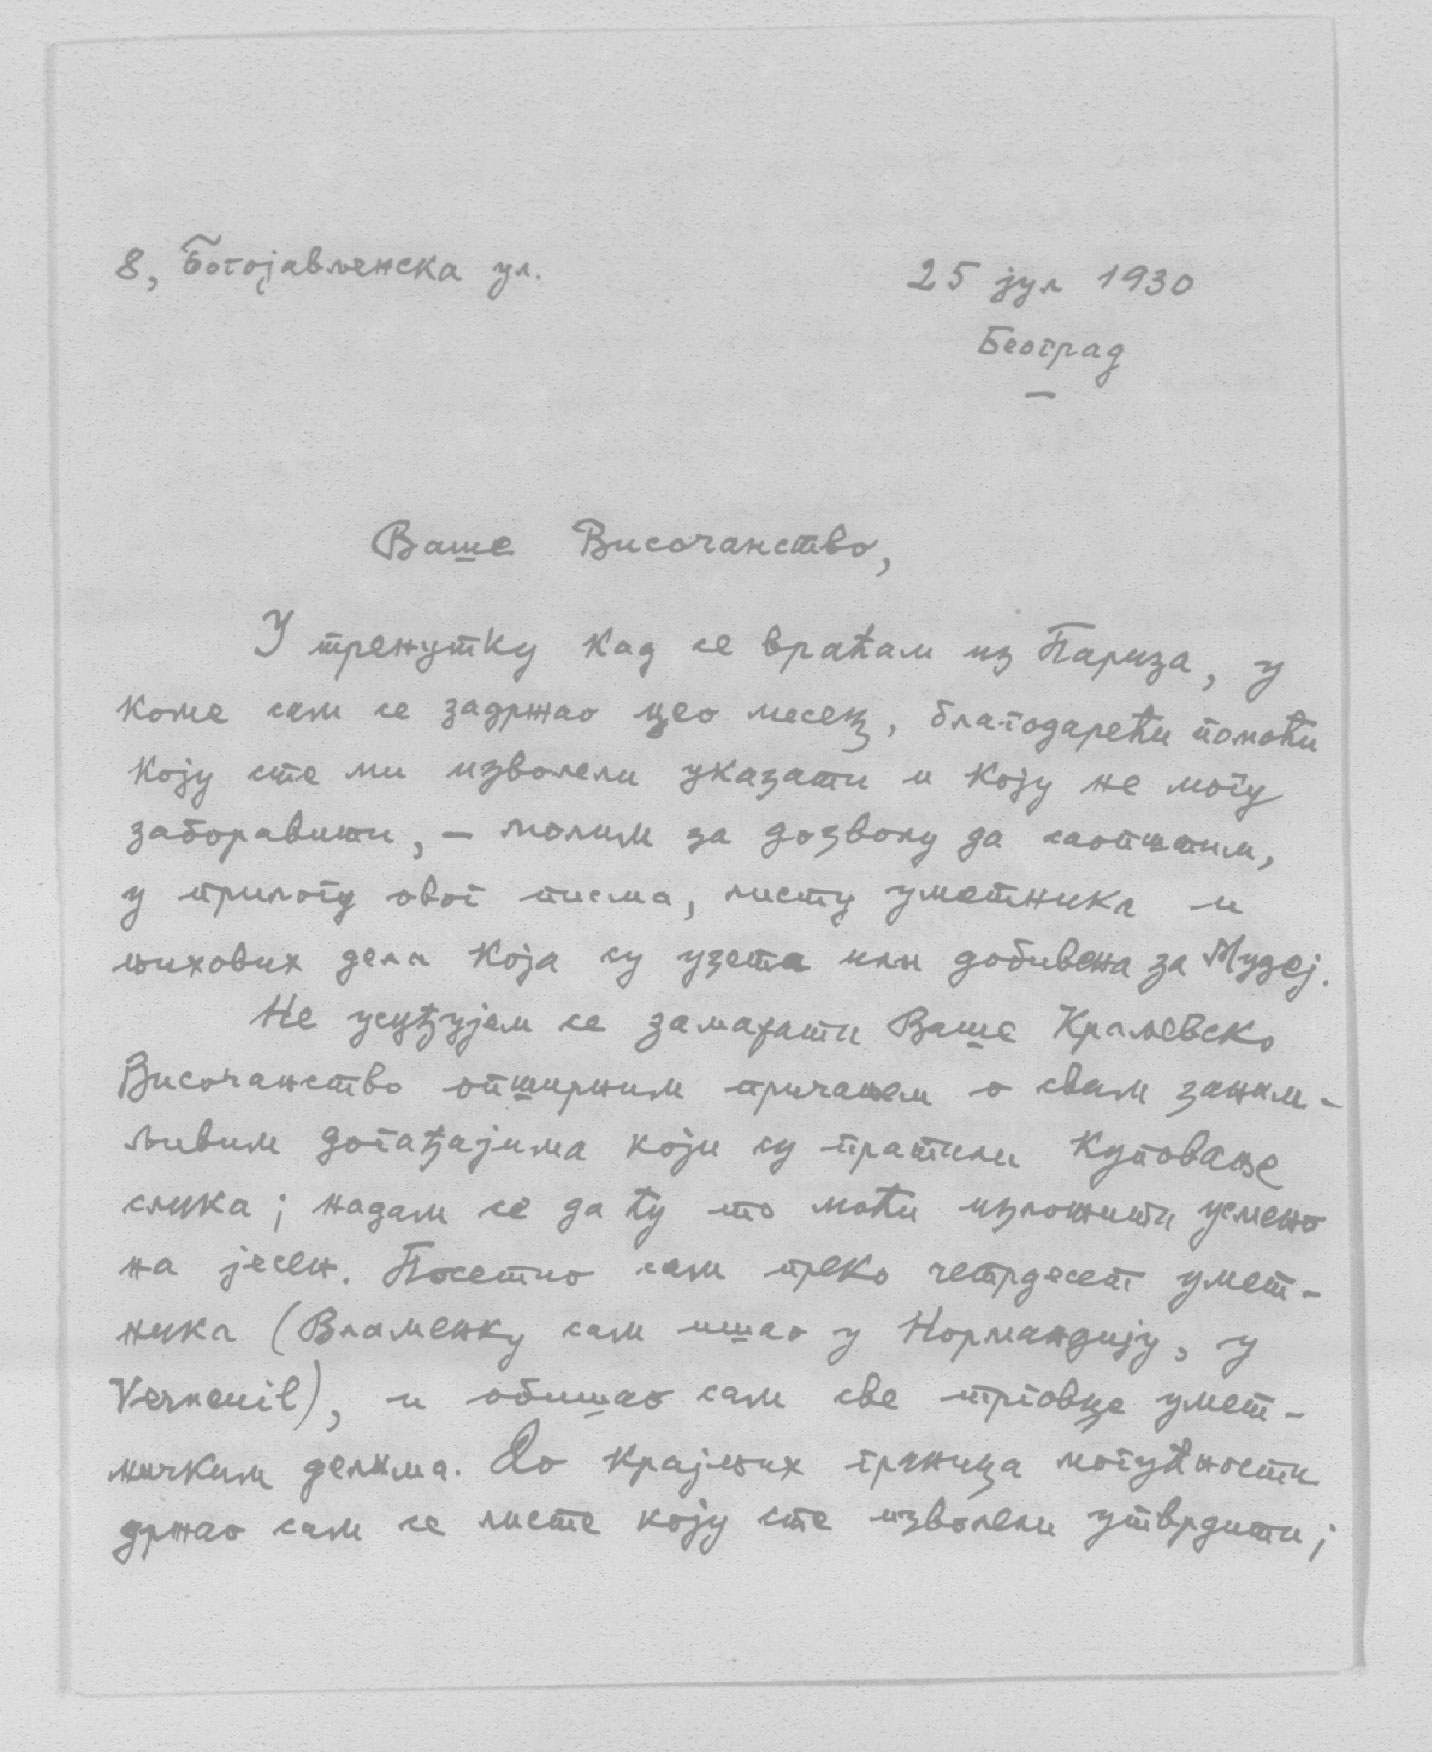 8, Богојављенска ул.
25 јул 1930
Београд
Ваше Височанство,
У тренутку кад се враћам из Париза, у
коме сам се задржао цео месец, благодарећи помоћи
коју сте ми изволели указати и коју не могу
заборавити, – молим за дозволу да саопштим,
у прилогу овог писма, листу уметника и
њихових дела која су узета или добивена за Музеј.
Не усуђујем се замарати Ваше Краљевско
Височанство опширним причањем о свим заним-
љивим догађајима који су пратили куповање
слика; надам се да ћу то моћи изложити усмено
на јесен. Посетио сам преко четрдесет умет-
ника (Вламенку сам ишао у Нормандију, у
Verneuil), и обишао сам све трговце умет-
ничким делима. До крајњих граница могућности
држао сам се листе коју сте изволели утврдити;